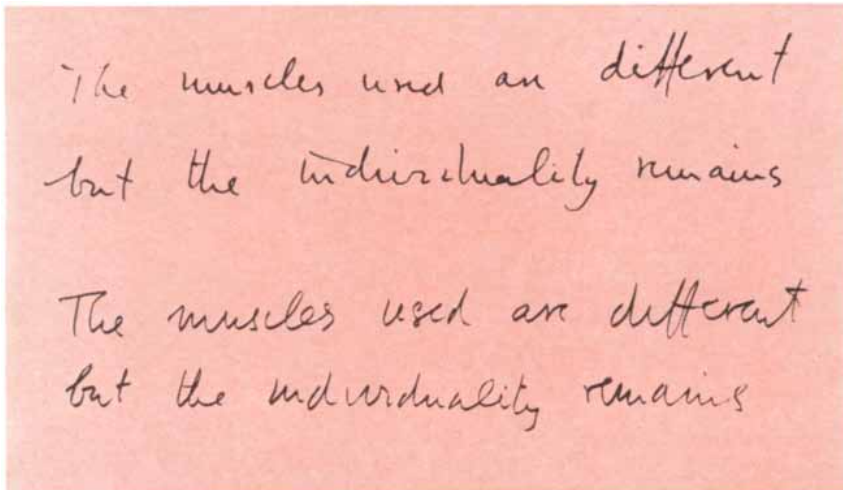 The muscles used are different
but the individuality remains
The muscles used are different
but the individuality remains